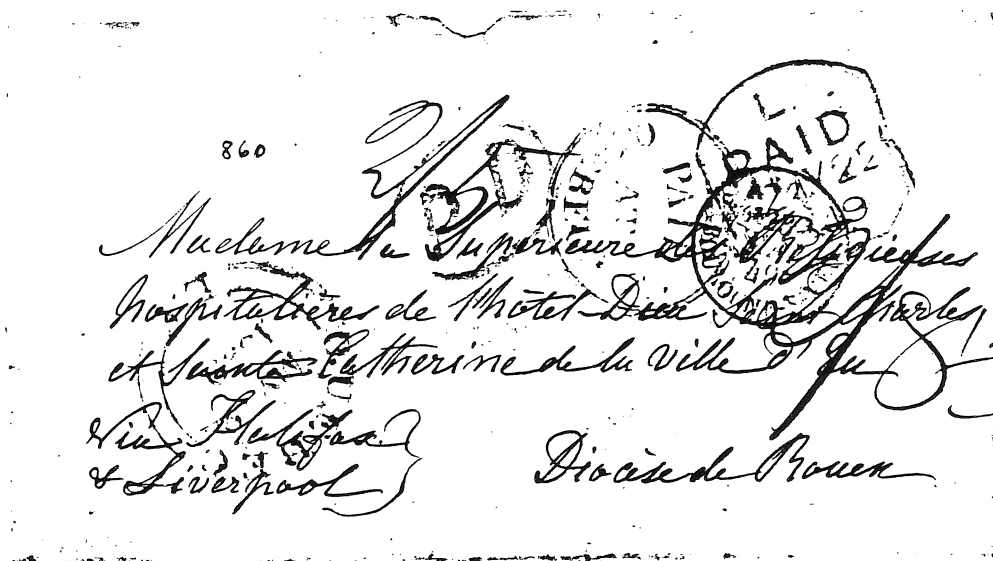 860
2/
PD
L.
PAID
PAID
Madame la Supérieure des Religieuses
hospitalières de l'hôtel-Dieu Saint Charles
et Sainte Catherine de la ville d'Eu
via Halifax
& Liverpool
Diocèse de Rouen